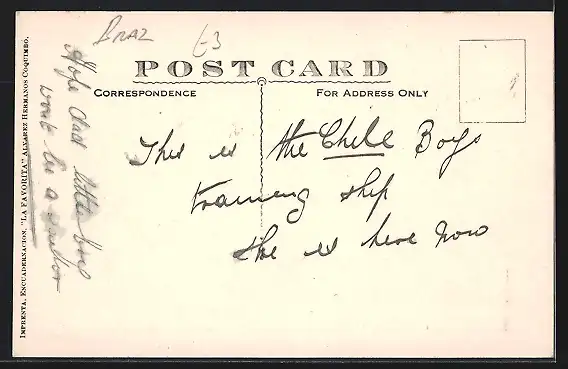 BRAZ
£3
POST CARD
CORRESPONDENCE
FOR ADDRESS ONLY
This is the Chile Boys
training ship
she is here now
Hope dad little boys
wont be a sailor
IMPRENTA, ENCUADERNACION, "LA FAVORITA" ALVAREZ HERMANOS COQUIMBO.